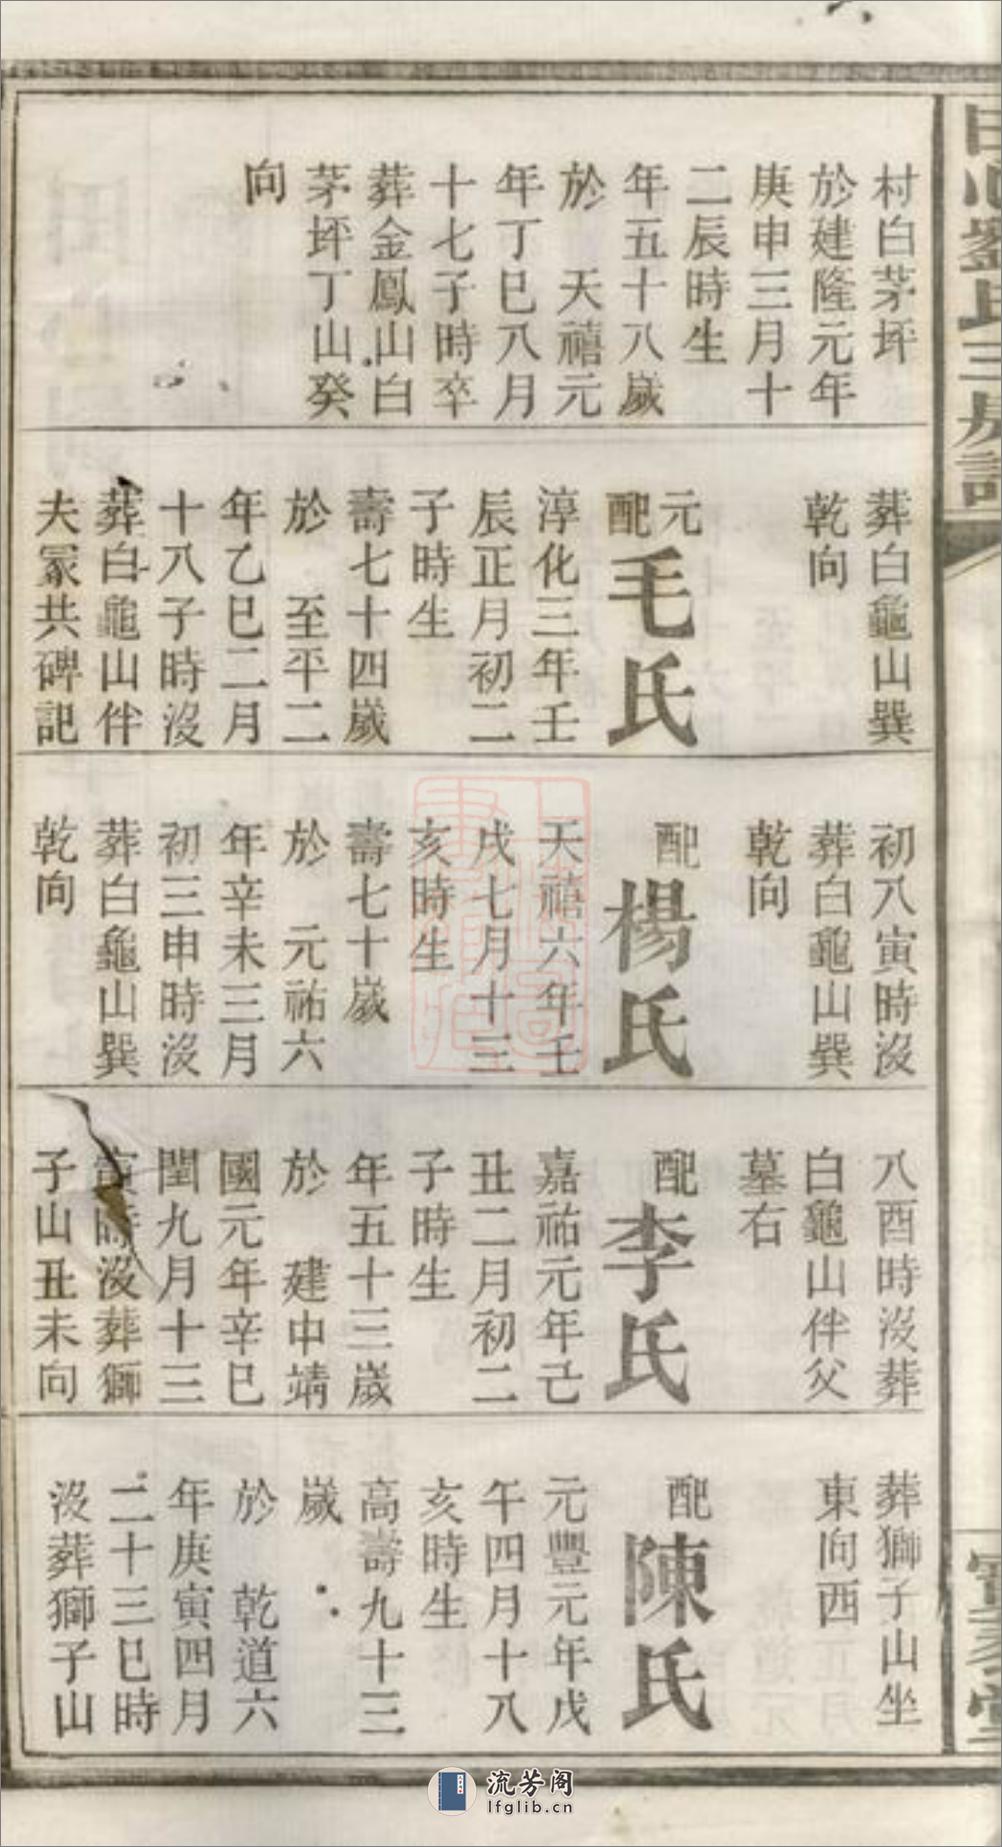 村白茅坪
於建隆元年
庚申三月十
二辰時生
年五十八歲
於 天禧元
年丁巳八月
十七子時卒
葬金鳳山白
茅坪丁山癸
向
葬白龜山巽
乾向
元
配
毛氏
淳化三年壬
辰正月初二
子時生
壽七十四歲
於 至平二
年乙巳二月
十八子時沒
葬白龜山伴
夫冢共碑記
初八寅時沒
葬白龜山巽
乾向
配楊氏
天禧六年壬
戌七月十三
亥時生
壽七十歲
於 元祐六
年辛未三月
初三申時沒
葬白龜山巽
乾向
八酉時沒葬
白龜山伴父
墓右
配李氏
嘉祐元年己
丑二月初二
子時生
年五十三歲
於 建中靖
國元年辛巳
閏九月十三
寅時沒葬獅
子山丑未向
葬獅子山坐
東向西
配陳氏
元豐元年戊
午四月十八
亥時生
高壽九十三
歲
於 乾道六
年庚寅四月
二十三巳時
沒葬獅子山
流芳阁
lfglib.cn